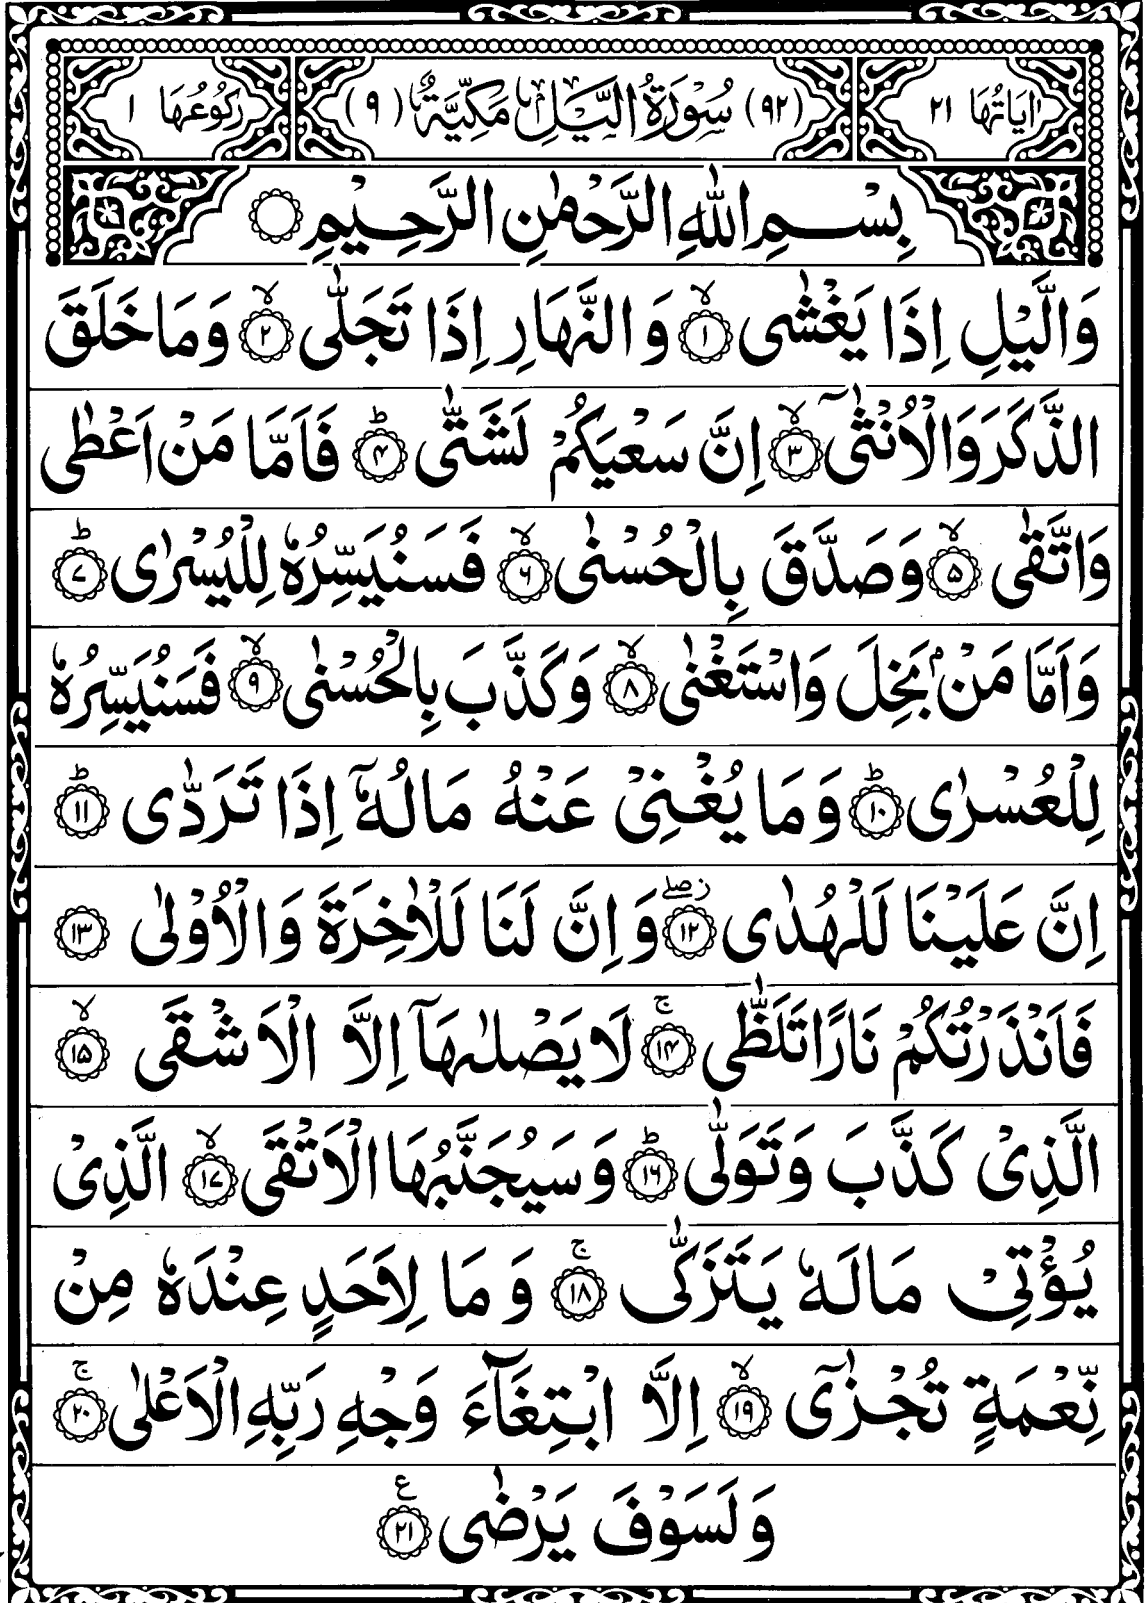 اٰيَاتُهَا ٢١ (٩٢) سُوْرَةُ الَّيْلِ مَكِّيَّةٌ (٩) رَكُوْعُهَا ١
بِسْمِ اللّٰهِ الرَّحْمٰنِ الرَّحِيْمِ
وَالَّيْلِ اِذَا يَغْشٰىۙ‏ ﴿۱﴾ وَالنَّهَارِ اِذَا تَجَلّٰىۙ‏ ﴿۲﴾ وَمَا خَلَقَ
الذَّكَرَ وَالْاُنْثٰٓىۙ‏ ﴿۳﴾ اِنَّ سَعْيَكُمْ لَشَتّٰىؕ‏ ﴿۴﴾ فَاَمَّا مَنْ اَعْطٰى
وَاتَّقٰىۙ‏ ﴿۵﴾ وَصَدَّقَ بِالْحُسْنٰىۙ‏ ﴿۶﴾ فَسَنُيَسِّرُهٗ لِلْيُسْرٰىؕ‏ ﴿۷﴾
وَاَمَّا مَنْۢ بَخِلَ وَاسْتَغْنٰىۙ‏ ﴿۸﴾ وَكَذَّبَ بِالْحُسْنٰىۙ‏ ﴿۹﴾ فَسَنُيَسِّرُهٗ
لِلْعُسْرٰىؕ‏ ﴿۱۰﴾ وَمَا يُغْنِىْ عَنْهُ مَالُهٗۤ اِذَا تَرَدّٰىؕ‏ ﴿۱۱﴾
اِنَّ عَلَيْنَا لَلْهُدٰىۖ‏ ﴿۱۲﴾ وَاِنَّ لَنَا لَلْاٰخِرَةَ وَالْاُوْلٰى‏ ﴿۱۳﴾
فَاَنْذَرْتُكُمْ نَارًا تَلَظّٰىۚ‏ ﴿۱۴﴾ لَا يَصْلٰٮهَاۤ اِلَّا الْاَشْقَىۙ‏ ﴿۱۵﴾
الَّذِىْ كَذَّبَ وَتَوَلّٰىؕ‏ ﴿۱۶﴾ وَسَيُجَنَّبُهَا الْاَتْقَىۙ‏ ﴿۱۷﴾ الَّذِىْ
يُؤْتِىْ مَالَهٗ يَتَزَكّٰىۚ‏ ﴿۱۸﴾ وَمَا لِاَحَدٍ عِنْدَهٗ مِنْ
نِّعْمَةٍ تُجْزٰٓىۙ‏ ﴿۱۹﴾ اِلَّا ابْتِغَآءَ وَجْهِ رَبِّهِ الْاَعْلٰىۚ‏ ﴿۲۰﴾
وَلَسَوْفَ يَرْضٰى ع ﴿۲۱﴾